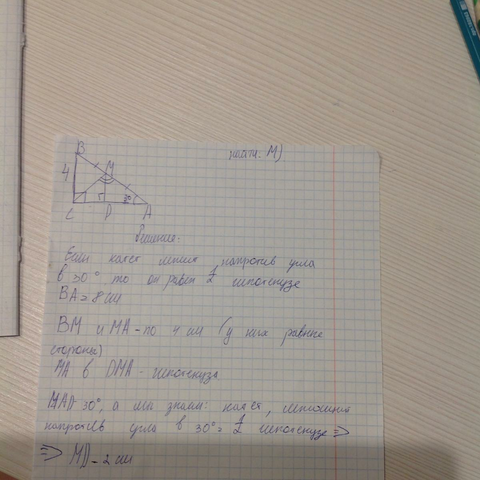 найти: МД
B
4
M
C
D
A
Решение.
Если катет лежит напротив угла
в 30° то он равен ½ гипотенузе
BA = 8 см
BM и MA - по 4 см (у них равные
стороны)
MA в DMA - гипотенуза
MAD = 30°, а мы знаем: катет, лежащий
напротив угла в 30° = ½ гипотенузе ⇒
⇒ MD - 2 см